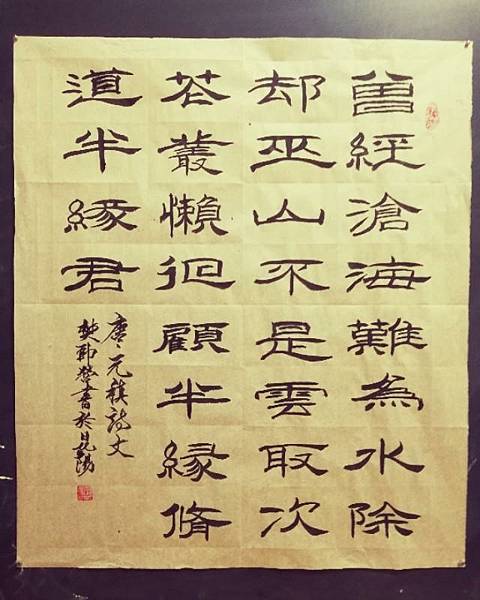 曾經滄海難為水除
却巫山不是雲取次
花叢懶迴顧半緣脩
道半緣君
唐元稹詩文
樊韩營書於昆陽